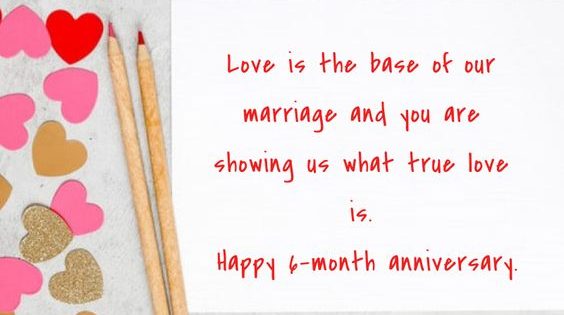 Love is the base of our
marriage and you are
showing us what true love
is.
Happy 6-month anniversary.